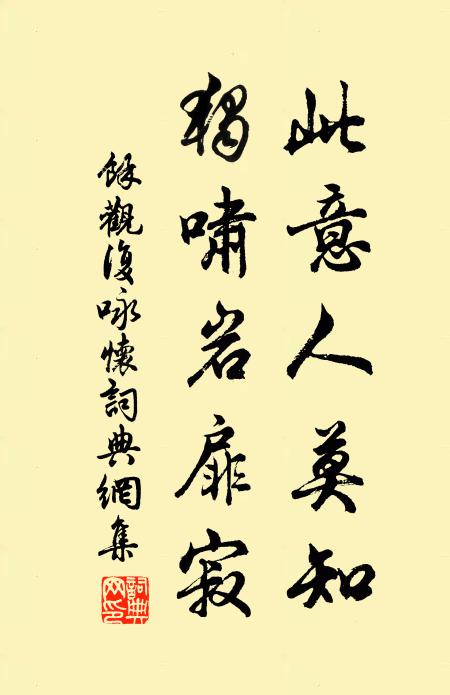 此意人莫知
独啸岩扉寂
餘觀復咏懷詞典網集
詞典网印